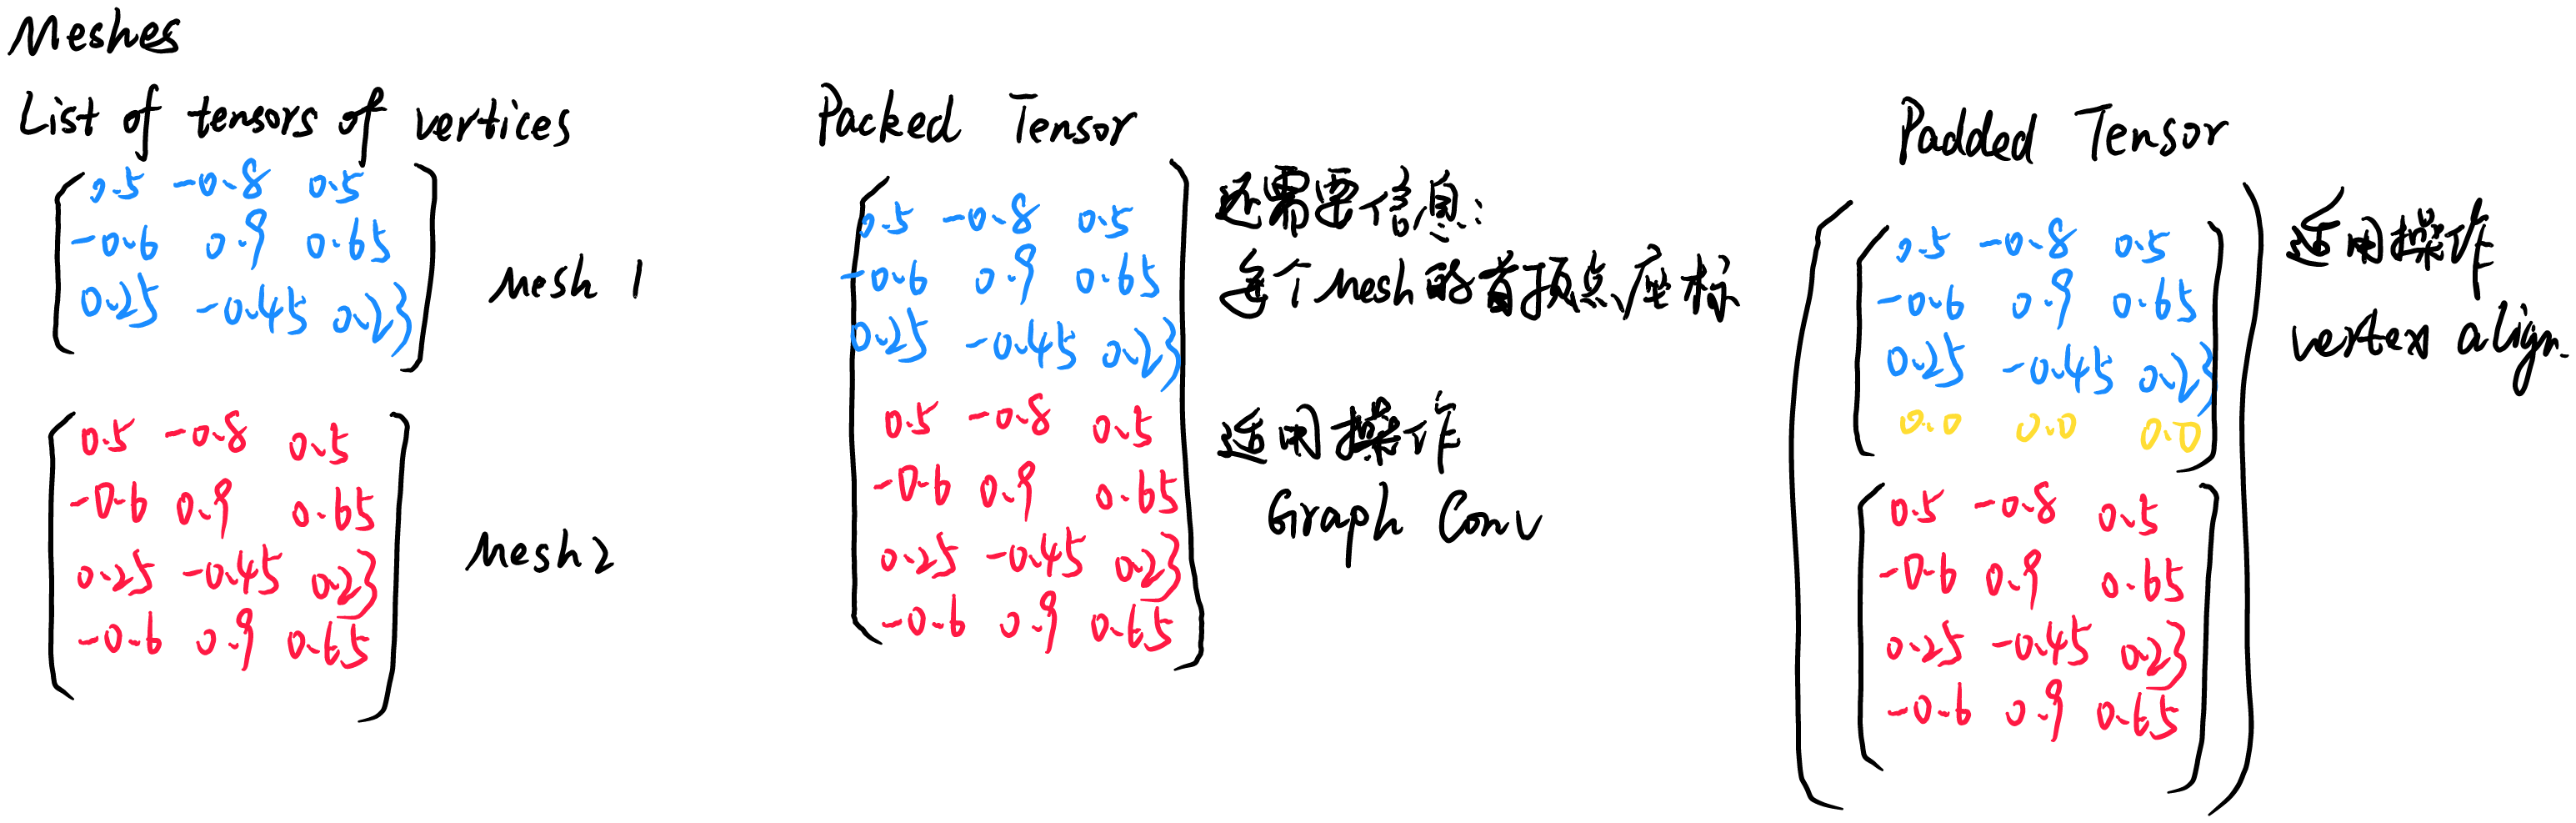 Meshes
List of tensors of vertices
0.5 -0.8 0.5
-0.6 0.9 0.65
0.25 -0.45 0.23
Mesh 1
0.5 -0.8 0.5
-0.6 0.9 0.65
0.25 -0.45 0.23
-0.6 0.9 0.65
Mesh2
Packed Tensor
0.5 -0.8 0.5
-0.6 0.9 0.65
0.25 -0.45 0.23
0.5 -0.8 0.5
-0.6 0.9 0.65
0.25 -0.45 0.23
-0.6 0.9 0.65
还需要信息:
每个Mesh的首顶点座标
适用操作
Graph Conv
Padded Tensor
0.5 -0.8 0.5
-0.6 0.9 0.65
0.25 -0.45 0.23
0.0 0.0 0.0
0.5 -0.8 0.5
-0.6 0.9 0.65
0.25 -0.45 0.23
-0.6 0.9 0.65
适用操作
vertex align.